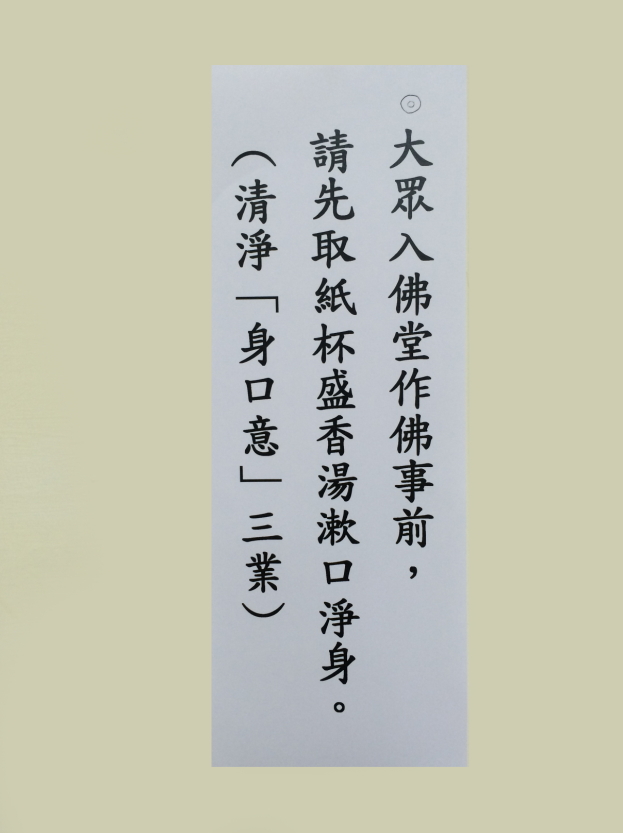 ◎大眾入佛堂作佛事前，
請先取紙杯盛香湯漱口淨身。
（清淨「身口意」三業）